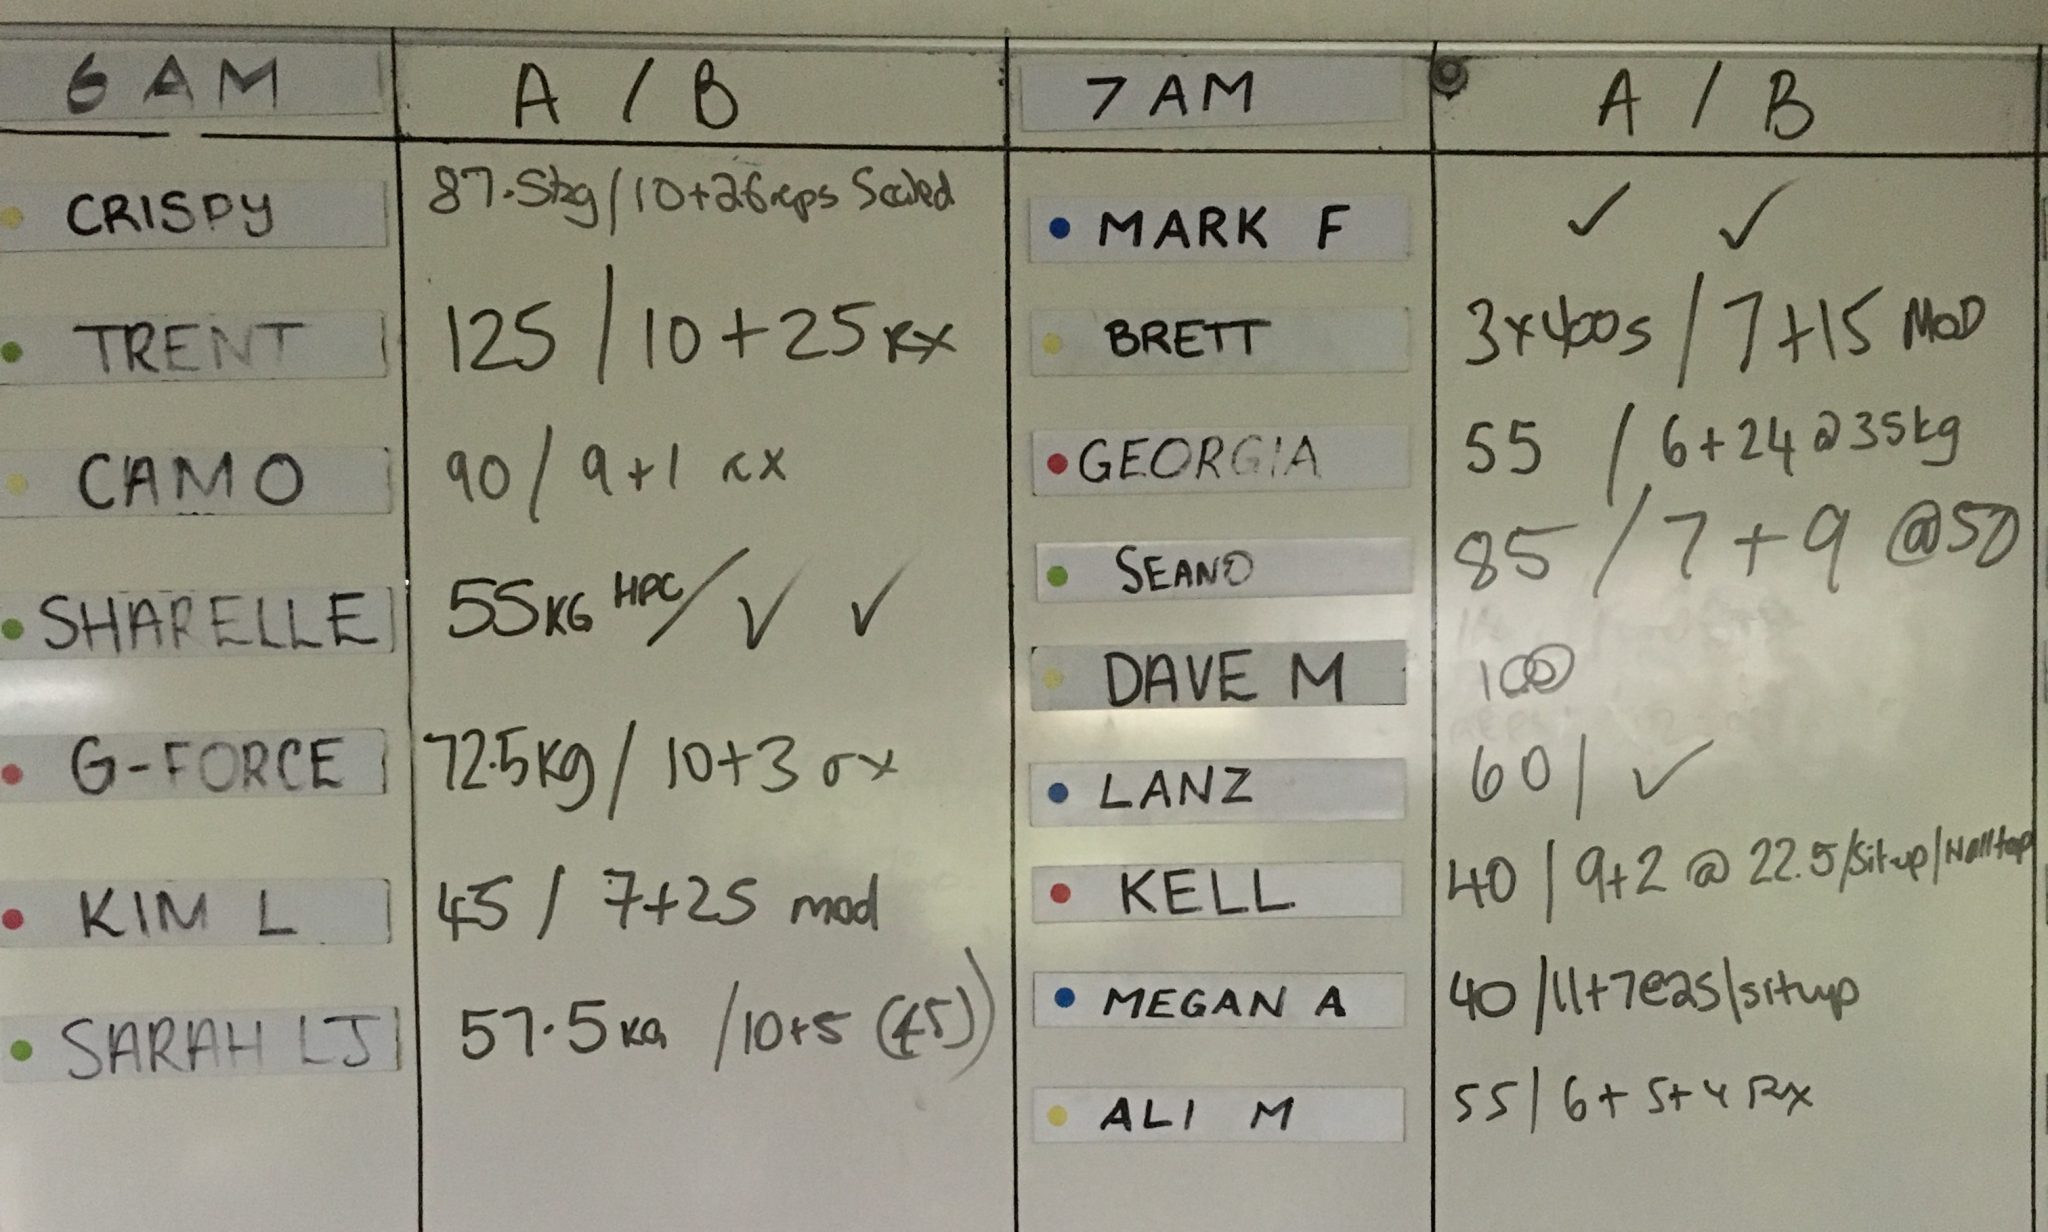 6 AM A / B
CRISPY 87.5kg/10+26reps Scaled
TRENT 125 / 10 + 25 RX
CAMO 90 / 9+1 rx
SHARELLE 55KG HPC/ ✓ ✓
G-FORCE 72.5kg / 10+3 rx
KIM L 45 / 7+25 mod
SARAH LJ 57.5KG /10+5 (45)
7 AM A / B
MARK F ✓ ✓
BRETT 3x400s / 7+15 MOD
GEORGIA 55 / 6+24 @35kg
SEANO 85 / 7+9 @50
DAVE M 100
LANZ 60 / ✓
KELL 40 / 9+2 @ 22.5/Situp/
MEGAN A 40 /11+7@25/situp
ALI M 55 / 6+5+4 Rx